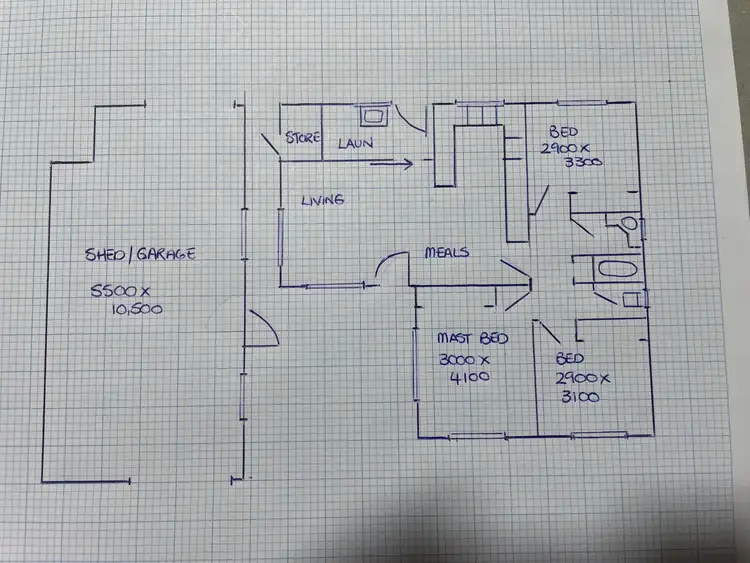 STORE
LAUN
BED
2900 X
3300
LIVING
SHED/GARAGE
5500 X
10,500
MEALS
MAST BED
3000 X
4100
BED
2900 X
3100